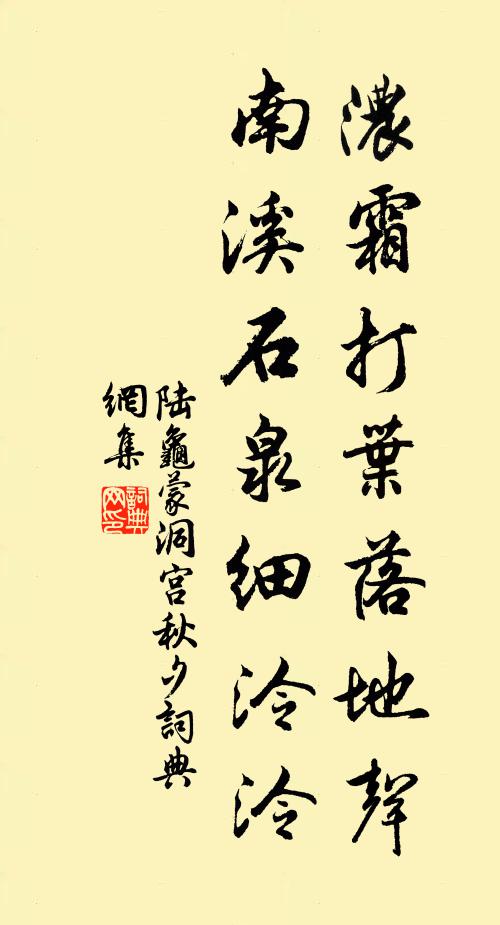 濃霜打葉落地聲
南溪石泉細泠泠
陆龜蒙洞宮秋夕詞典
網集
詞典
网印